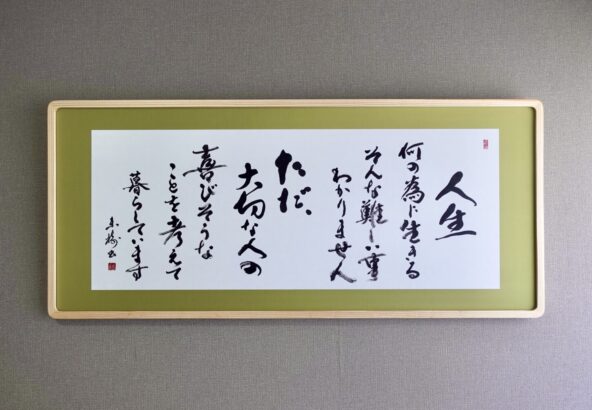 人生
何の為に生きる
そんな難しい事
わかりません
ただ、
大切な人の
喜びそうな
ことを考えて
暮らしています